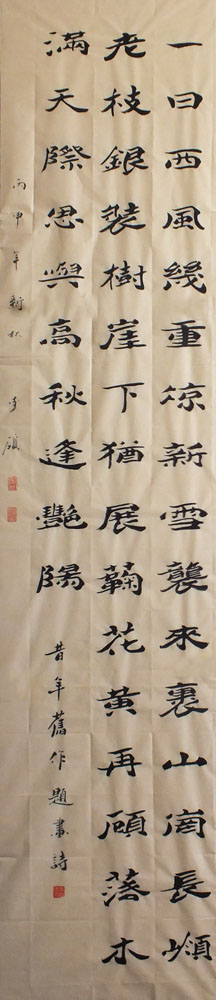 一日西風幾重涼新雪襲來裹山崗長
老枝銀裝樹崖下猶展鞠花黃再顧落木
滿天際思與高秋逢艷陽
昔年舊作題畫詩
丙申年新秋